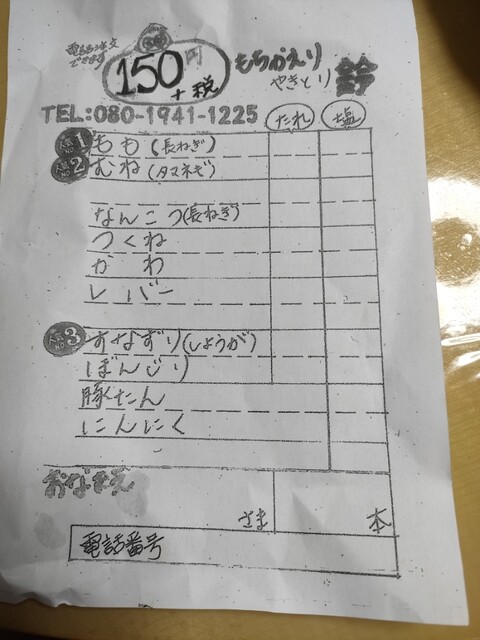 電話ご注文できます
150円+税
もちかえり
やきとり 鈴
TEL:080-1941-1225
たれ 塩
人気No1 もも(長ねぎ)
人気No2 むね(タマネギ)
なんこつ(長ねぎ)
つくね
かわ
レバー
人気No3 すなずり(しょうが)
ぼんじり
豚たん
にんにく
おなまえ
さま 本
電話番号